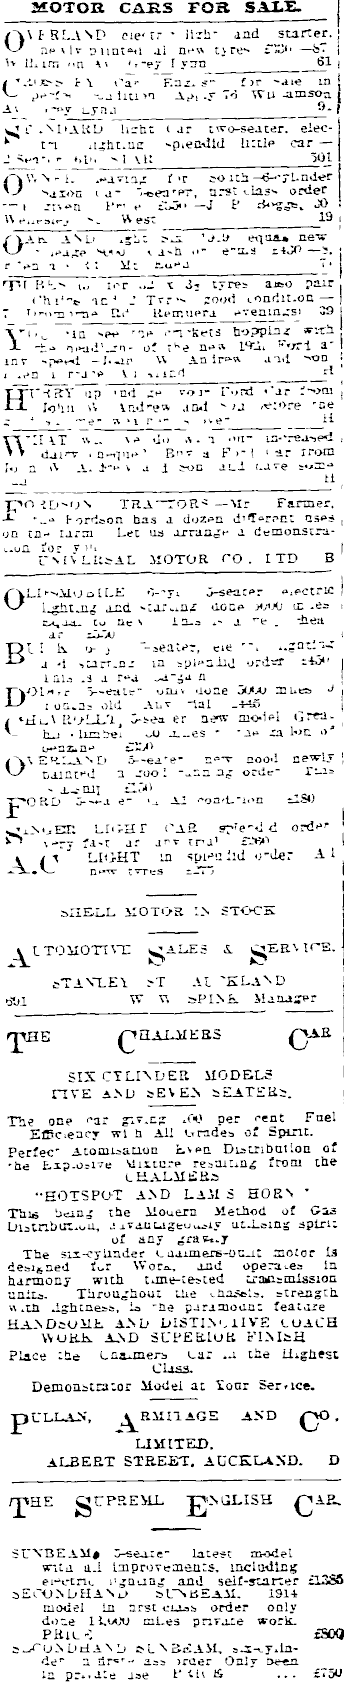 MOTOR CARS FOR SALE.
OVERLAND electric light and starter,
newly painted all new tyres —87
Williamson Av Grey Lynn 61
CROSSLEY Car English for sale in
perfect condition Apply 76 Williamson
Av Grey Lynn
STANDARD light Car two-seater, elec-
lighting splendid little car —
2 Seater STAR 501
OWNER leaving for South 6-cylinder
Saxon Car 5-seater, first class order
given Price £350 —J P Beggs, 50
Wellesley St West 19
OAKLAND Light Six 1919 equal new
mileage cash or terms £450
TUBES to fit 32 x 3½ tyres also pair
Chains and 2 Tyres good condition —
7 Dromorne Rd Remuera evenings 39
YOU can see the crickets hopping with
the headlights of the new 1921 Ford at
any speed —John W Andrew and Son
H
HURRY up and get your Ford Car from
John W Andrew and Son before the
good summer weather is over H
WHAT will we do with our increased
dairy cheque? Buy a Ford Car from
John W Andrew and Son and have some
H
FORDSON TRACTORS —Mr Farmer,
the Fordson has a dozen different uses
on the farm Let us arrange a demonstra-
tion for you
UNIVERSAL MOTOR CO. LTD B
OLDSMOBILE 6-cyl 5-seater electric
lighting and starting done 5000 miles
equal to new This is a very cheap
car £550
BUICK 6-cyl 7-seater, electric lighting
and starting in splendid order £450
This is a real bargain
DODGE 5-seater only done 5000 miles
months old Any trial £445
CHEVROLET, 5-seater new model Great
hill climber 30 miles to the gallon of
benzine
OVERLAND 5-seater new hood newly
painted in good running order This
is cheap £150
FORD 5-seater in A1 condition £180
SINGER LIGHT CAR splendid order
very fast car any trial £260
A.C LIGHT in splendid order All
new tyres £275
SHELL MOTOR IN STOCK
AUTOMOTIVE SALES & SERVICE.
STANLEY ST AUCKLAND
691 W W SPINK Manager
THE CHALMERS CAR
SIX CYLINDER MODELS
FIVE AND SEVEN SEATERS.
The one car giving 100 per cent Fuel
Efficiency with All Grades of Spirit.
Perfect Atomisation Even Distribution of
the Explosive Mixture resulting from the
CHALMERS
"HOTSPOT AND RAM'S HORN"
This being the Modern Method of Gas
Distribution, advantageously utilising spirit
of any gravity
The six-cylinder Chalmers-built motor is
designed for Work, and operates in
harmony with time-tested transmission
units. Throughout the chassis, strength
with lightness, is the paramount feature
HANDSOME AND DISTINCTIVE COACH
WORK AND SUPERIOR FINISH
Place the Chalmers Car in the Highest
Class.
Demonstrator Model at Your Service.
PULLAN, ARMITAGE AND CO.
LIMITED.
ALBERT STREET, AUCKLAND. D
THE SUPREME ENGLISH CAR.
SUNBEAM, 5-seater latest model
with all improvements, including
electric lighting and self-starter £1385
SECONDHAND SUNBEAM, 1914
model in first class order only
done 13,000 miles private work.
PRICE £800
SECONDHAND SUNBEAM, six-cylin-
der in first-class order Only been
in private use PRICE ... £750